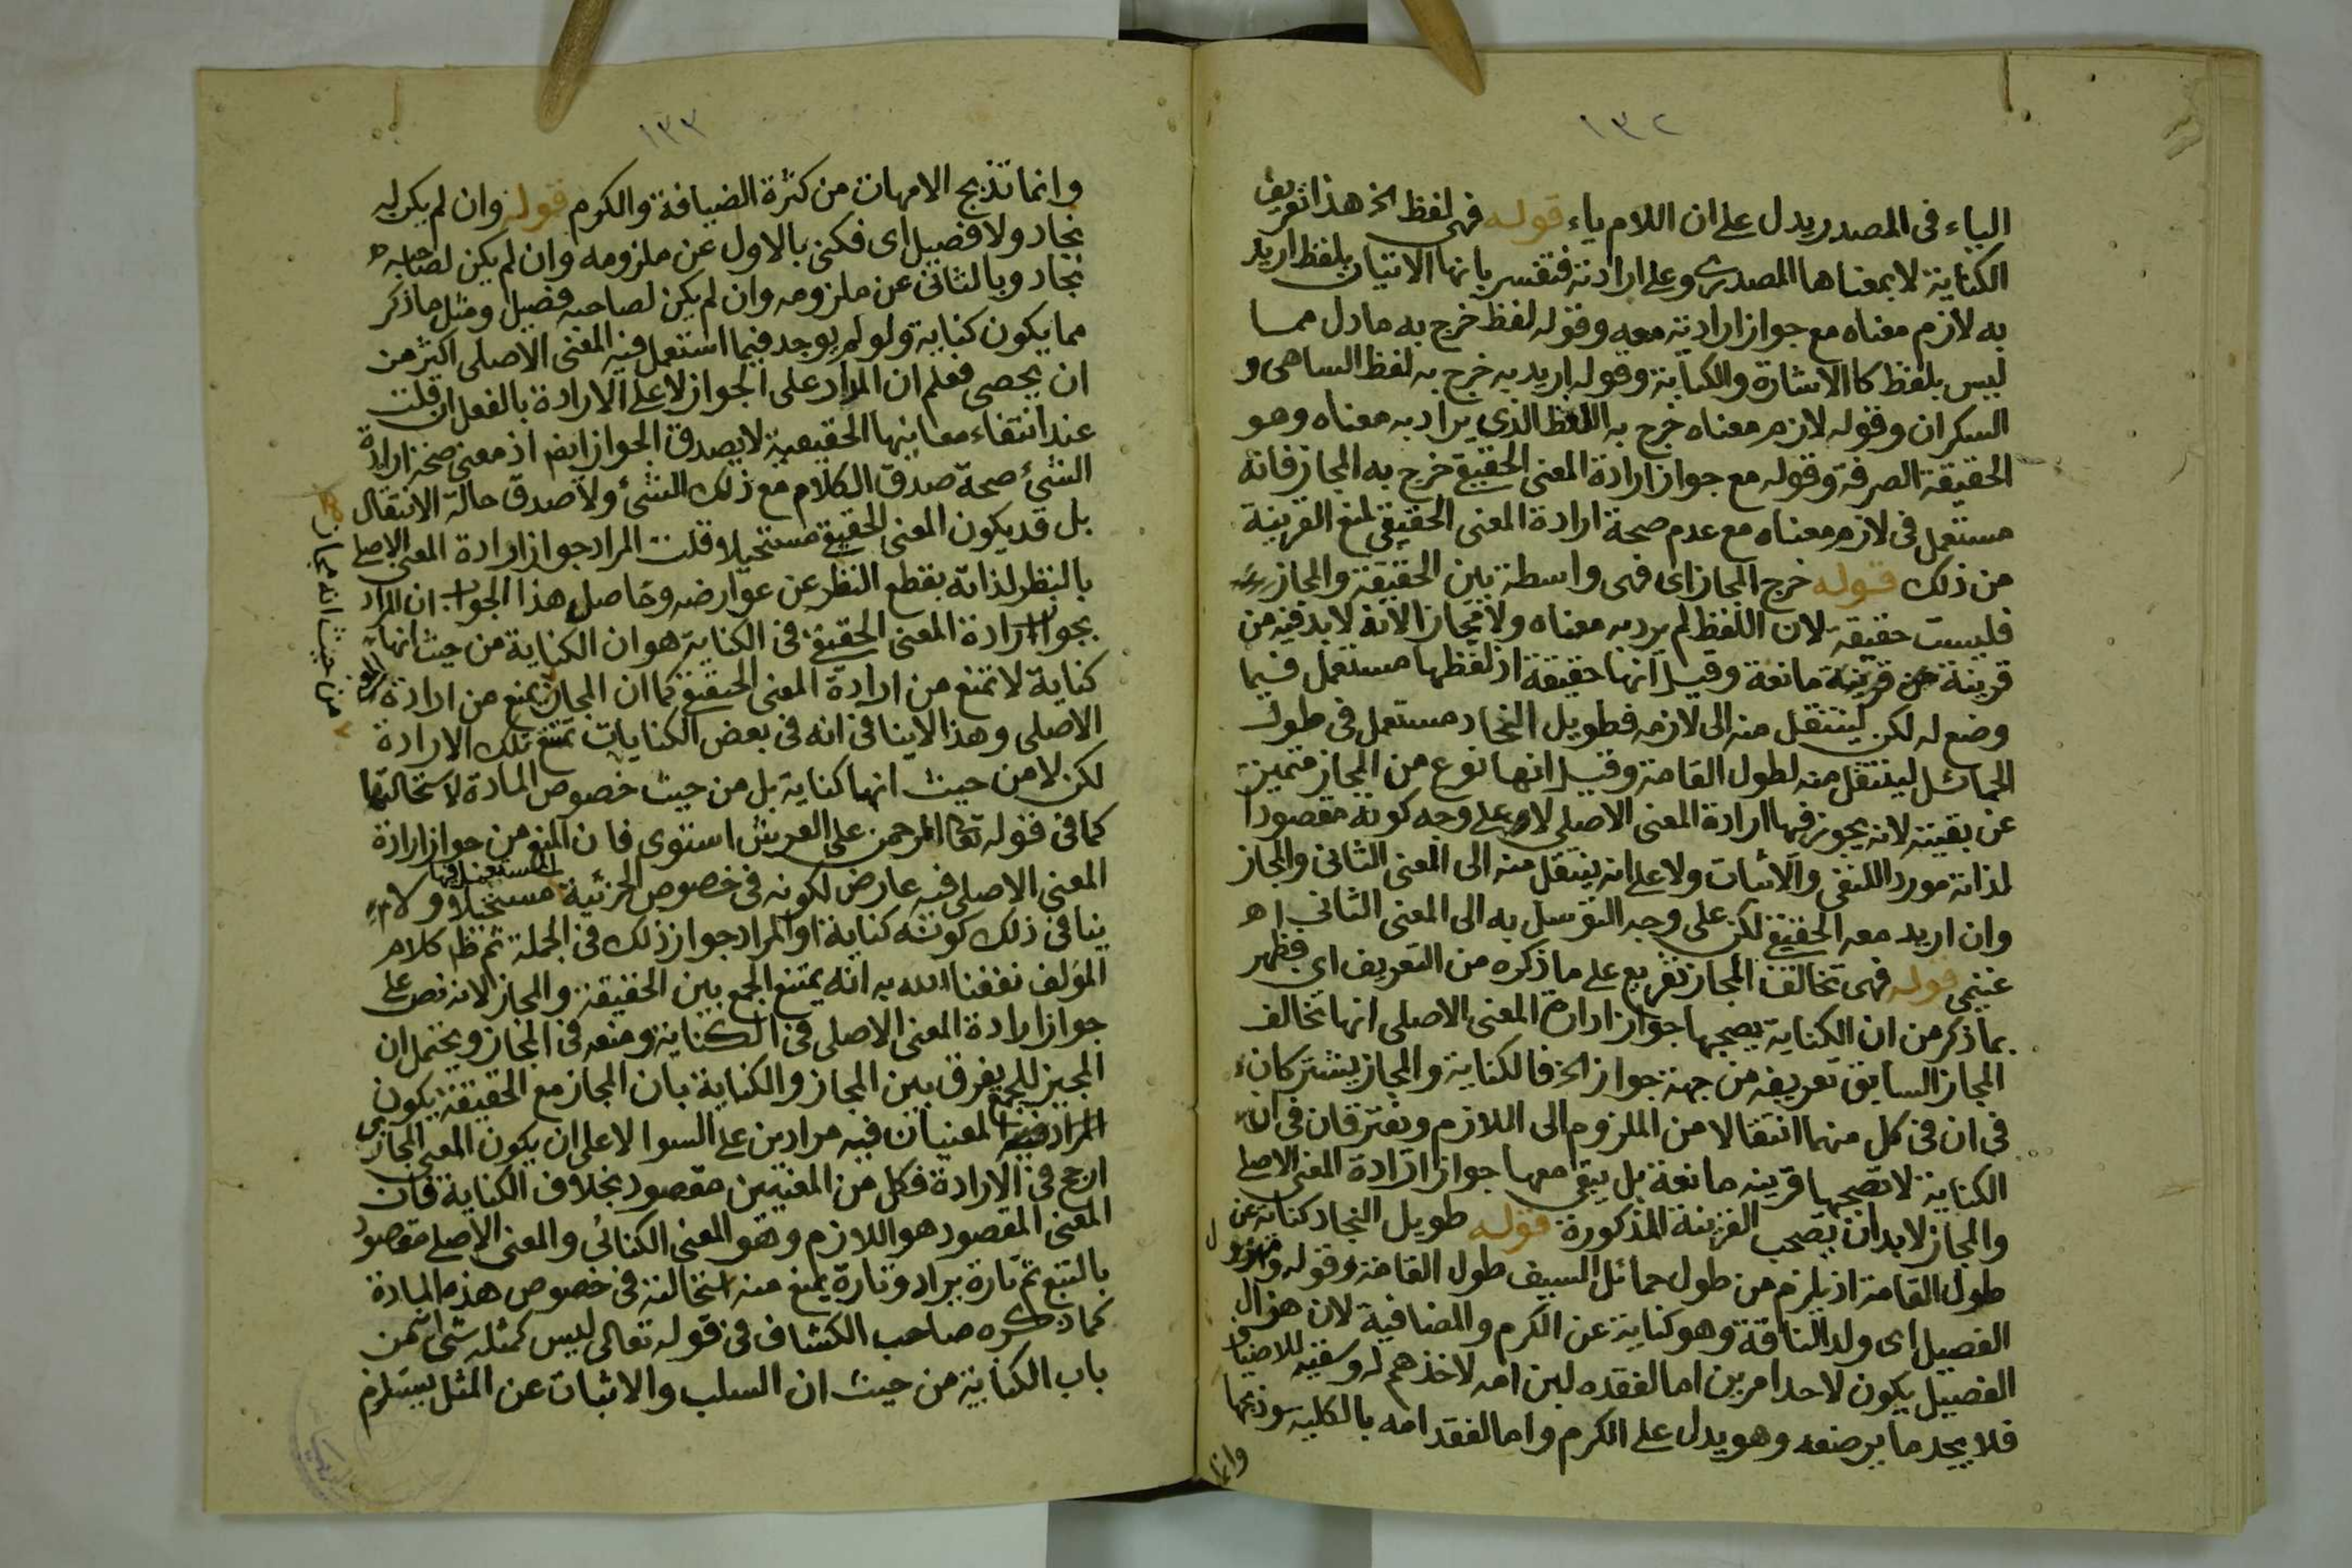 ١٣٢
الياء فى المصدر يدل على ان اللام ياء قوله فهى لفظ الخ هذا تعريف
الكناية لا بمعناها المصدرى وعلى ارادته فتفسر بانها الاتيان بلفظ اريد
به لازم معناه مع جواز ارادته معه وقوله لفظ خرج به ما دل مما
ليس بلفظ كا الاشارة والكتابة وقوله اريد به خرج به لفظ الساهى و
السكران وقوله لازم معناه خرج به اللفظ الذي يراد به معناه وهو
الحقيقة الصرفة وقوله مع جواز ارادة المعنى الحقيقى خرج به المجاز فانه
مستعمل فى لازم معناه مع عدم صحة ارادة المعنى الحقيقي لمنع القرينة
من ذلك قوله خرج المجاز اى فهى واسطة بين الحقيقة والمجاز
فليست حقيقة لان اللفظ لم يرد به معناه ولا مجازا لانه لا بد فيه من
قرينة مانعة وقيل انها حقيقة اذ لفظها مستعمل فيما
وضع له لكن لينتقل منه الى لازمه فطويل النجاد مستعمل فى طول
الحمائل لينتقل منه لطول القامة وقيل انها نوع من المجاز متميزة
عن بقيته لانه يجوز فيها ارادة المعنى الاصلى لا على وجه كونه مقصودا
لذاته مورد اللنفى والاثبات ولا على انه ينتقل منه الى المعنى الثانى والمجاز
وان اريد معه الحقيقى لكن على وجه التوسل به الى المعنى الثانى اه
غنيمى قوله فهى تخالف المجاز تفريع على ما ذكره من التعريف اى فظهر
بما ذكر من ان الكناية يصحبها جواز ارادة المعنى الاصلى انها تخالف
المجاز السابق تعريفه من جهة جواز الخ فالكناية والمجاز يشتركان
فى ان فى كل منهما انتقالا من الملزوم الى اللازم ويفترقان فى ان
الكناية لا تصحبها قرينه مانعة بل يبقى معها جواز ارادة المعنى الاصلى
والمجاز لا بد ان تصحب القرينة المذكورة قوله طويل النجاد كناية عن
طول القامة اذ يلزم من طول حمائل السيف طول القامة وقوله ومهزول
الفصيل اى ولد الناقة وهو كناية عن الكرم والمضافية لان هزال
الفصيل يكون لاحد امرين اما لفقده لبن امه لاخذهم له وسقيه للاضياف
فلا يجد ما يرضعه وهو يدل على الكرم واما لفقد امه بالكلية وذبحها
وانما
١٣٣
وانما تذبح الامهات من كثرة الضيافة والكرم قوله وان لم يكن له
نجاد ولا فصيل اى فكنى بالاول عن ملزومه وان لم يكن لصاحبه
نجاد وبالثانى عن ملزومه وان لم يكن لصاحبه فصيل ومثل ما ذكر
مما يكون كناية ولو لم يوجد فيما استعمل فيه المعنى الاصلى اكثر من
ان يحصى فعلم ان المراد على الجواز لا على الارادة بالفعل ان قلت
عند انتفاء معانيها الحقيقية لا يصدق الجواز ايضا اذ معنى صحة ارادة
الشئ صحة صدق الكلام مع ذلك الشئ ولا صدق حالة الانتقال
بل قد يكون المعنى الحقيقى مستحيلا وقلت المراد جواز ارادة المعنى الاصلى
بالنظر لذاته بقطع النظر عن عوارضه وحاصل هذا الجواب ان المراد
بجواز ارادة المعنى الحقيقى فى الكناية هو ان الكناية من حيث انها
كناية لا تمنع من ارادة المعنى الحقيقى كما ان المجاز يمنع من ارادة
من حيث انه مجاز
الاصلى وهذا لا ينافى انه فى بعض الكنايات تمتنع تلك الارادة
لكن لا من حيث انها كناية بل من حيث خصوص المادة لاستحالتها
كما فى قوله تعا الرحمن على العرش استوى فان المنع من جواز ارادة
المعنى الاصلى فيه عارض لكونه فى خصوص الجزئية المستعمل فيها مستحيلا ولا
ينافى ذلك كونه كناية او المراد جواز ذلك فى الجملة ثم ظ كلام
المؤلف نفعنا الله به انه يمتنع الجمع بين الحقيقة والمجاز لانه نص على
جواز ارادة المعنى الاصلى فى الكناية ومنعه فى المجاز ويحتمل ان
المجيز للجمع يفرق بين المجاز والكناية بان المجاز مع الحقيقة يكون
المعنيان فيه مرادين على السوا لا على ان يكون المعنى المجازى
ارجح فى الارادة فكل من المعنيين مقصود بخلاف الكناية فان
المعنى المقصود هو اللازم وهو المعنى الكنائى والمعنى الاصلى مقصود
بالتبع ثم تارة يراد وتارة يمنع منه استحالته فى خصوص هذه المادة
كما ذكره صاحب الكشاف فى قوله تعالى ليس كمثله شئ انه من
باب الكناية من حيث ان السلب والاثبات عن المثل يستلزم